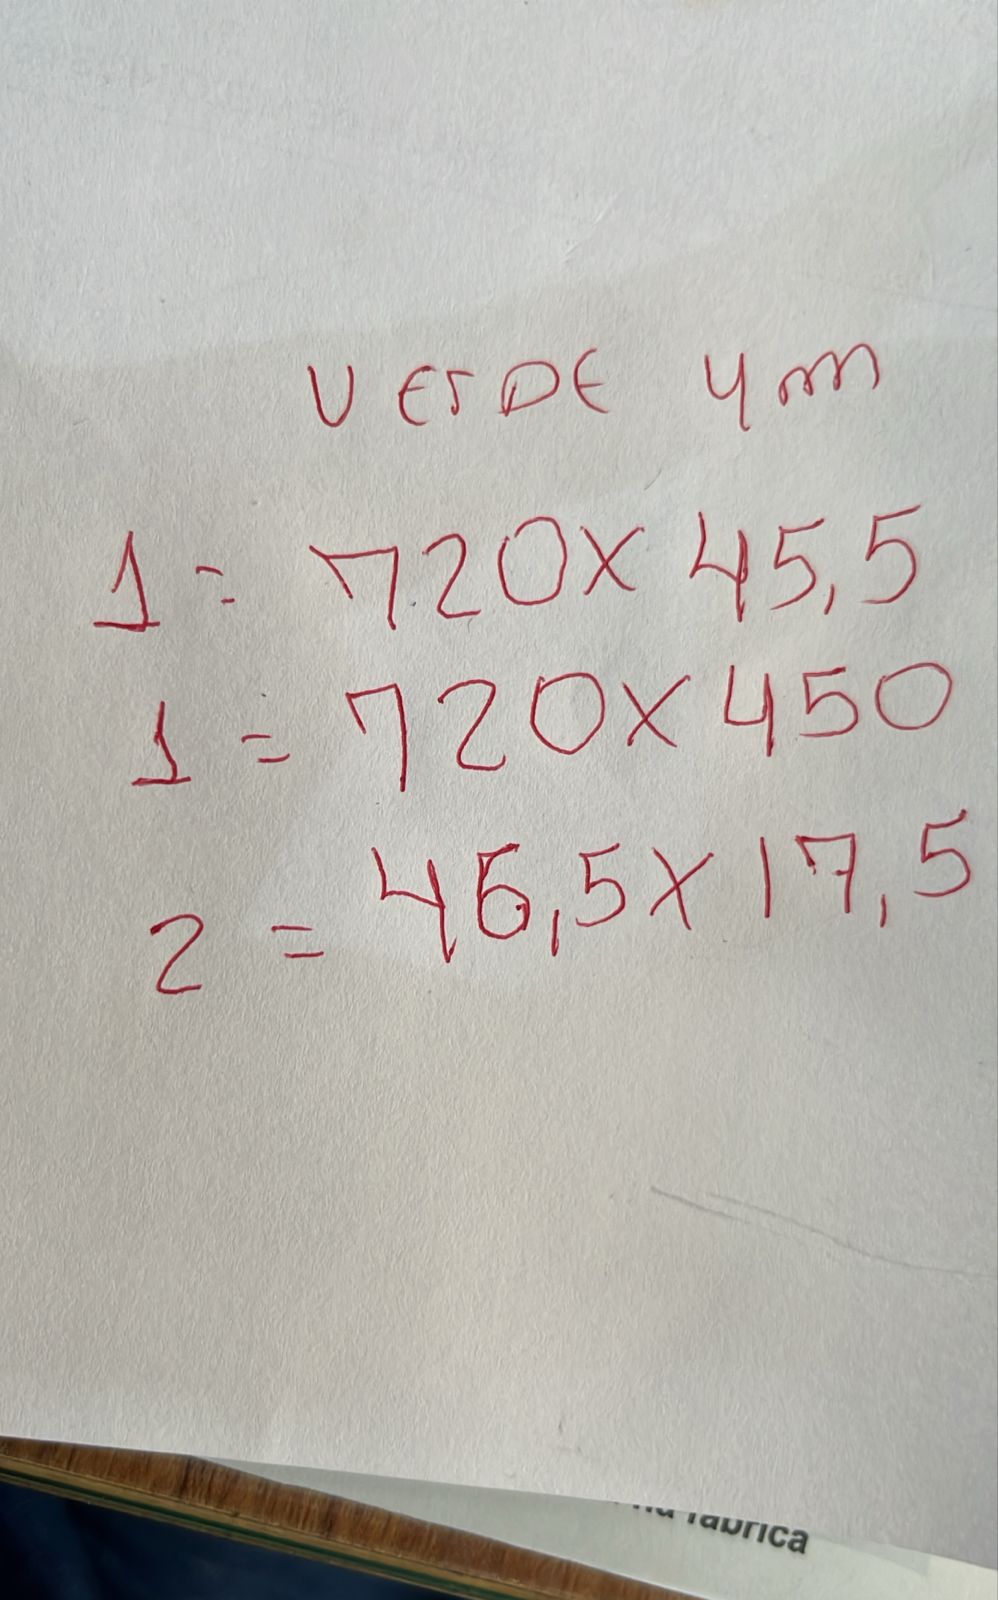 VERDE 4mm
1= 720x45,5
1= 720x450
2= 46,5x17,5
fábrica